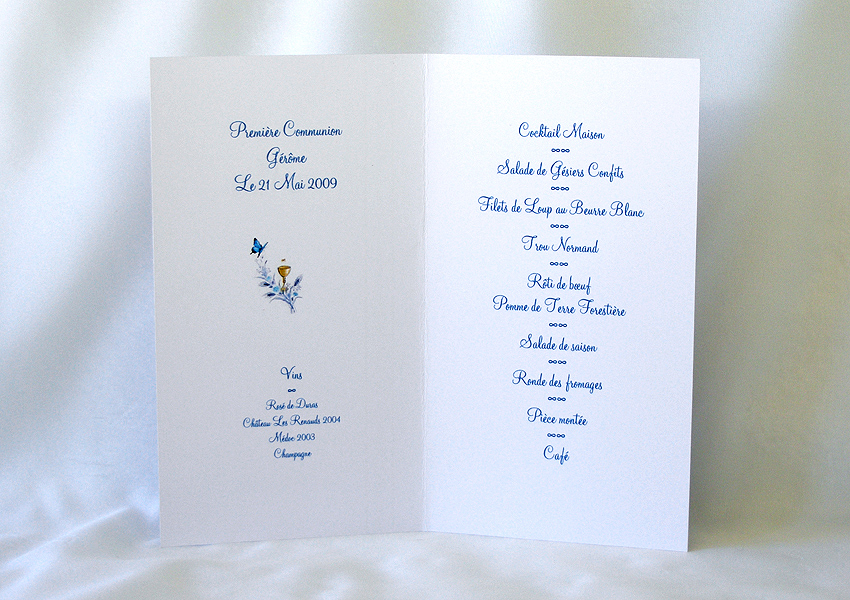 Première Communion
Gérôme
Le 21 Mai 2009
Vins
Rosé de Duras
Château Les Renauds 2004
Médoc 2003
Champagne
Cocktail Maison
Salade de Gésiers Confits
Filets de Loup au Beurre Blanc
Trou Normand
Rôti de bœuf
Pomme de Terre Forestière
Salade de saison
Ronde des fromages
Pièce montée
Café